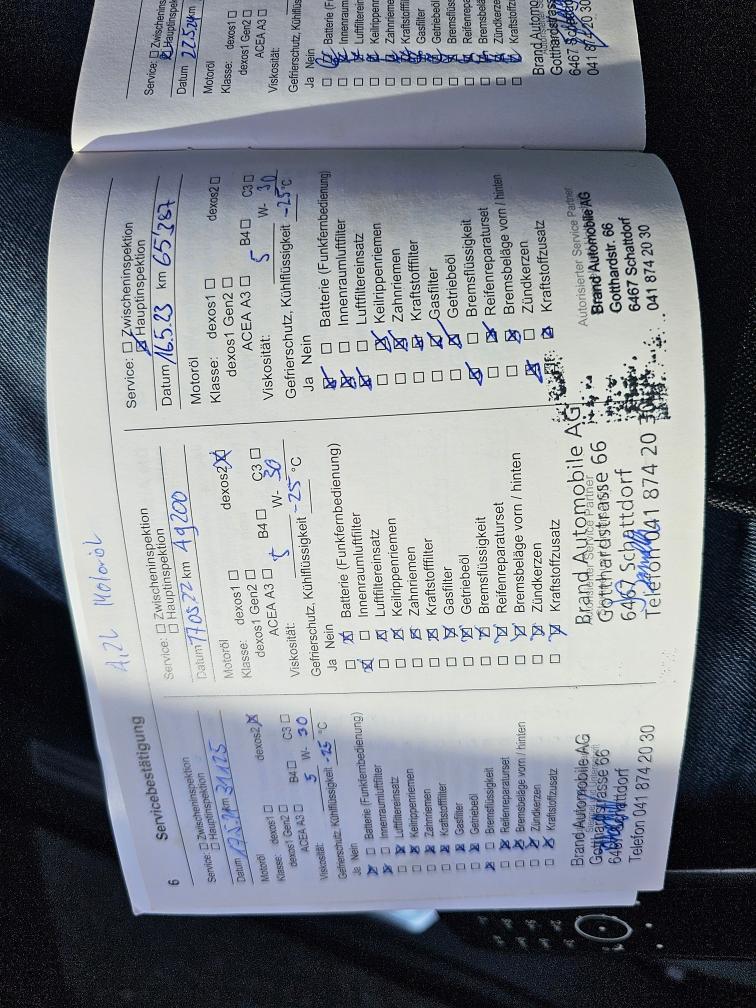 6
Servicebestätigung
4,2L Motoröl
Service: Zwischeninspektion
Hauptinspektion
Datum km 31125
Motoröl
Klasse: dexos1 dexos2
dexos1 Gen2
ACEA A3 B4 C3
Viskosität: 5 W- 30
Gefrierschutz, Kühlflüssigkeit -25 °C
Ja Nein
Batterie (Funkfernbedienung)
Innenraumluftfilter
Luftfiltereinsatz
Keilrippenriemen
Zahnriemen
Kraftstofffilter
Gasfilter
Getriebeöl
Bremsflüssigkeit
Reifenreparaturset
Bremsbeläge vorn / hinten
Zündkerzen
Kraftstoffzusatz
Brand Automobile AG
Gotthardstrasse 66
6467 Schattdorf
Telefon 041 874 20 30
Service: Zwischeninspektion
Hauptinspektion
Datum 17.05.22 km 49200
Motoröl
Klasse: dexos1 dexos2
dexos1 Gen2
ACEA A3 B4 C3
Viskosität: 5 W- 30
Gefrierschutz, Kühlflüssigkeit -25 °C
Ja Nein
Batterie (Funkfernbedienung)
Innenraumluftfilter
Luftfiltereinsatz
Keilrippenriemen
Zahnriemen
Kraftstofffilter
Gasfilter
Getriebeöl
Bremsflüssigkeit
Reifenreparaturset
Bremsbeläge vorn / hinten
Zündkerzen
Kraftstoffzusatz
Autorisierter Service Partner
Brand Automobile AG
Gotthardstrasse 66
6467 Schattdorf
Telefon 041 874 20 30
Service: Zwischeninspektion
Hauptinspektion
Datum 16.5.23 km 65'387
Motoröl
Klasse: dexos1 dexos2
dexos1 Gen2
ACEA A3 B4 C3
Viskosität: 5 W- 30
Gefrierschutz, Kühlflüssigkeit -25 °C
Ja Nein
Batterie (Funkfernbedienung)
Innenraumluftfilter
Luftfiltereinsatz
Keilrippenriemen
Zahnriemen
Kraftstofffilter
Gasfilter
Getriebeöl
Bremsflüssigkeit
Reifenreparaturset
Bremsbeläge vorn / hinten
Zündkerzen
Kraftstoffzusatz
Autorisierter Service Partner
Brand Automobile AG
Gotthardstr. 66
6467 Schattdorf
041 874 20 30
Service: Zwischenins
Hauptinspek
Datum 22.5.24 km
Motoröl
Klasse: dexos1
dexos1 Gen2
ACEA A3
Viskosität:
Gefrierschutz, Kühlflüss
Ja Nein
Batterie (Fu
Innenraumlu
Luftfilterein
Keilrippenri
Zahnriemen
Kraftstofffil
Gasfilter
Getriebeöl
Bremsflüss
Reifenrepa
Bremsbelä
Zündkerze
Kraftstoffz
Brand Automo
Gotthardstras
6467 Schattdo
041 874 20 30